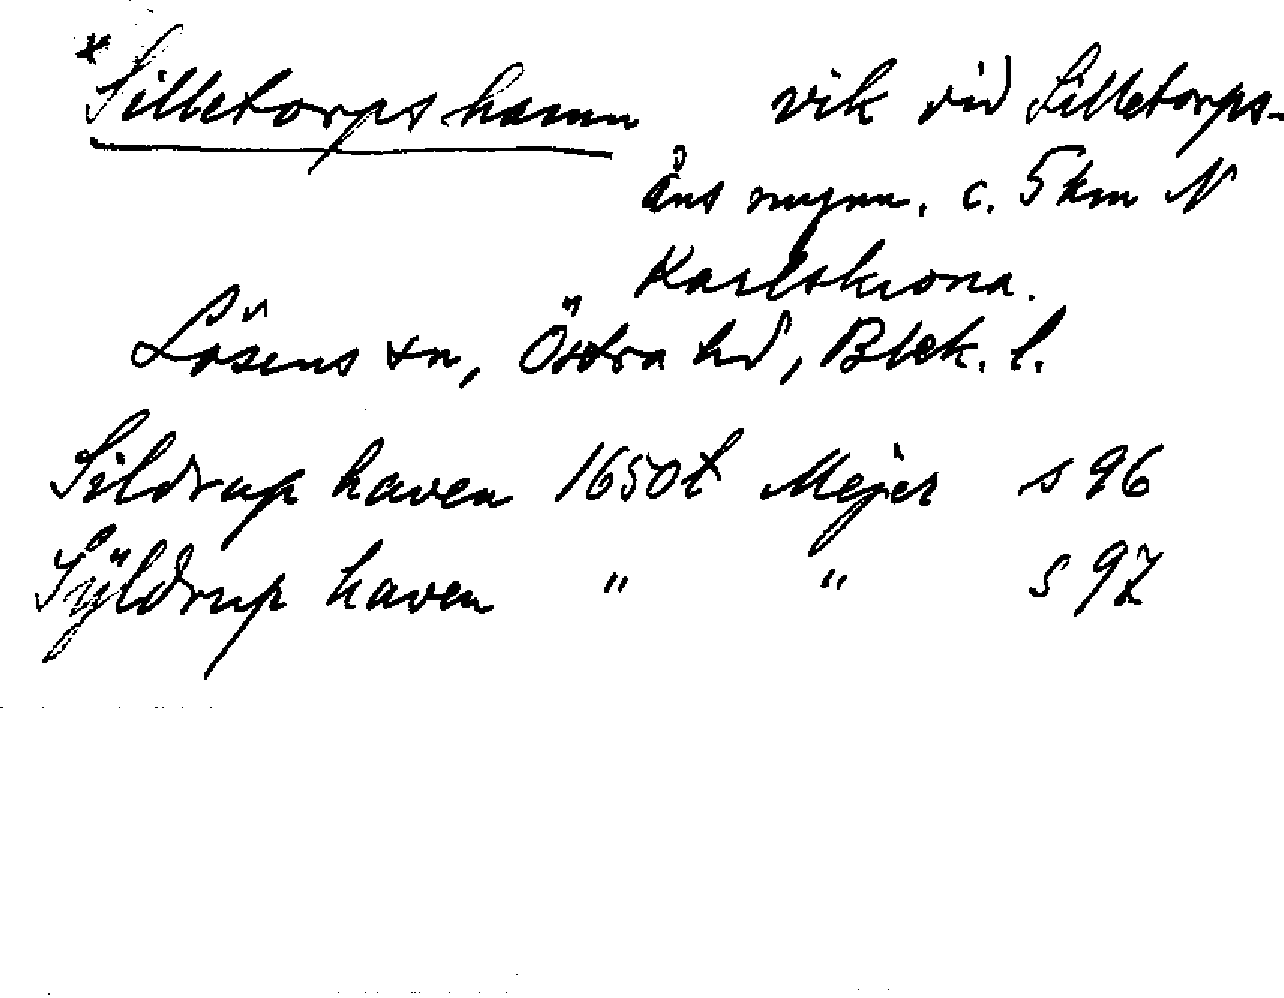 *Silletorpshamn vik vid Silletorps-
åns mynn. c. 5 km N
Karlskrona.
Lösens sn, Östra hd, Blek. l.
Sildrup haven 1650t Mejer s 96
Sÿldrup haven " " s 97